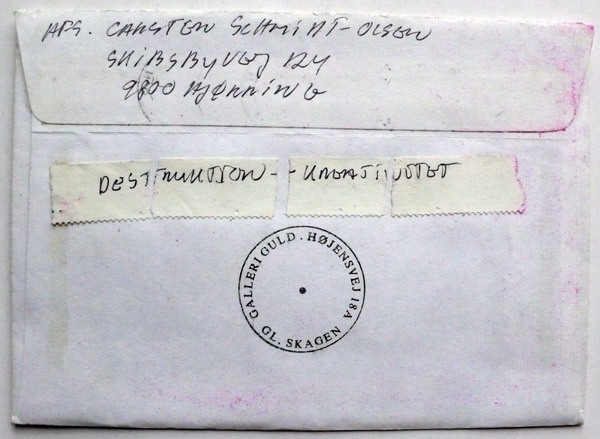 AFS. CARSTEN SCHMIDT-OLSEN
SKIBSBYVEJ 124
9800 HJØRRING
DESTRUKTION - - KREATIVITET
GALLERI GULD . HØJENSVEJ 18A
GL. SKAGEN